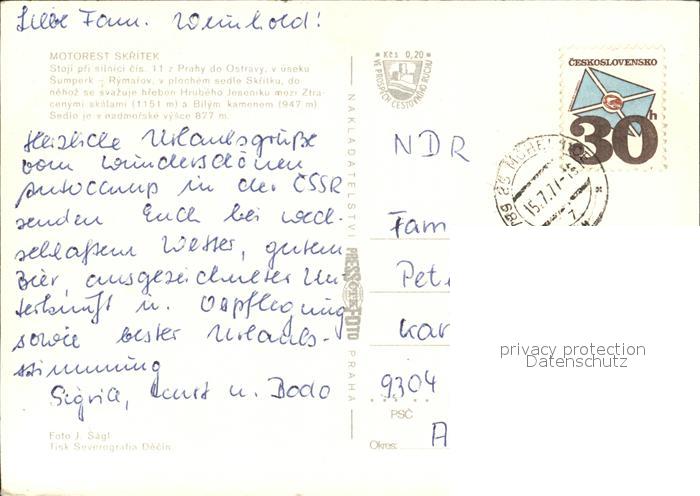 Liebe Fam. Weinhold!
MOTOREST SKŘÍTEK
Stojí při silnici čís. 11 z Prahy do Ostravy, v úseku
Šumperk - Rýmařov, v plochém sedle Skřítku, do
něhož se svažuje hřeben Hrubého Jeseníku mezi Ztra-
cenými skálami (1151 m) a Bílým kamenem (947 m).
Sedlo je v nadmořské výšce 877 m.
Herzliche Urlaubsgrüße
vom wunderschönen
Autocamp in der ČSSR
senden Euch bei wech-
selhaftem Wetter, gutem
Bier, ausgezeichneter Un-
terkunft u. Verpflegung
sowie bester Urlaubs-
stimmung
Sigrid, Kurt u. Bodo
Foto J. Ságl
Tisk Severografia Děčín
NAKLADATELSTVÍ PRESSFOTO PRAHA
Kčs 0,20
VE PROSPĚCH CESTOVNÍHO RUCHU
ČESKOSLOVENSKO
30h
15.7.77
NDR
Fam
Pet
Kar
9304
PSČ
Okres:
A
privacy protection
Datenschutz